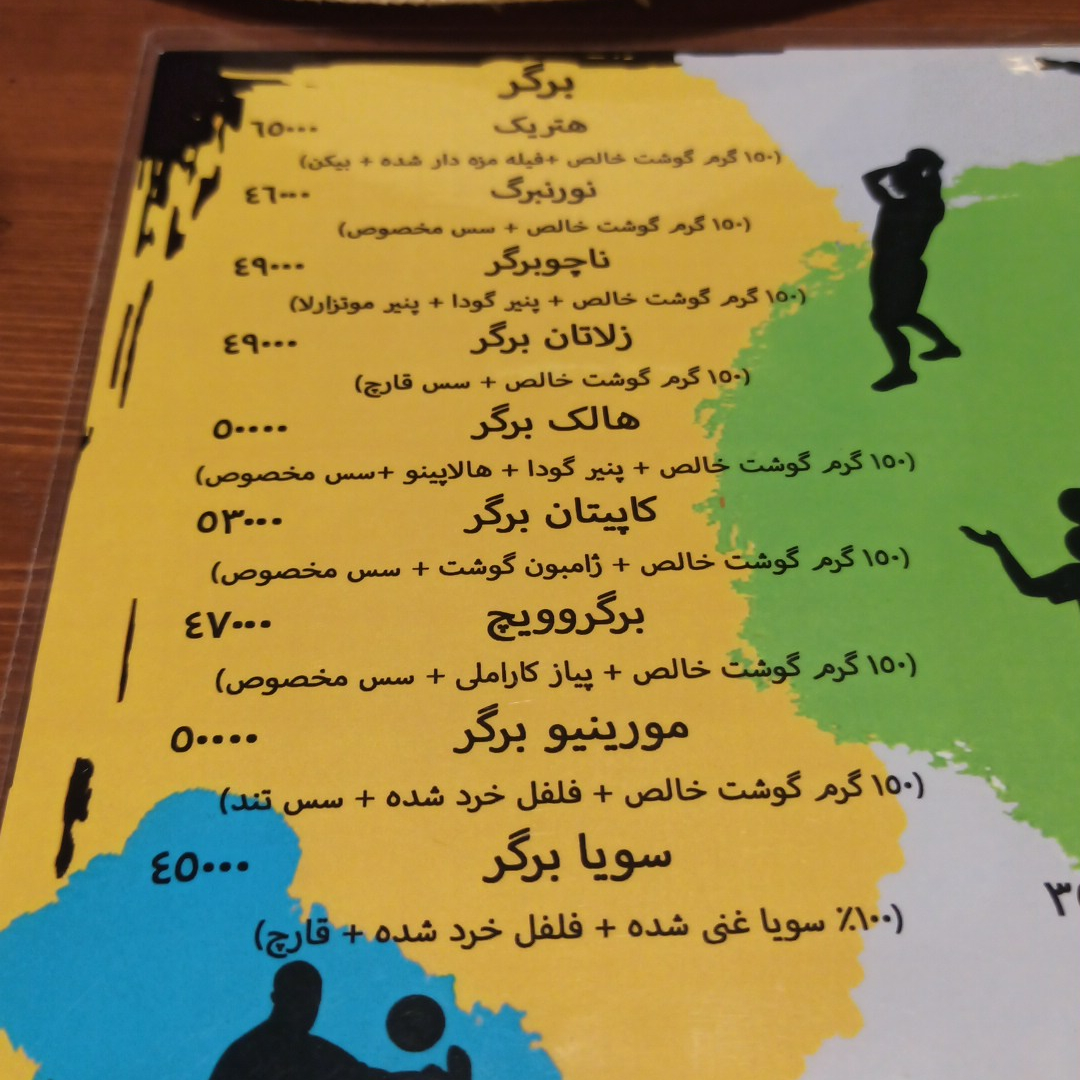 برگر
هتریک ٦٥٠٠٠
(١٥٠ گرم گوشت خالص +فیله مزه دار شده + بیکن)
نورنبرگ ٤٦٠٠٠
(١٥٠ گرم گوشت خالص + سس مخصوص)
ناچوبرگر ٤٩٠٠٠
(١٥٠ گرم گوشت خالص + پنیر گودا + پنیر موتزارلا)
زلاتان برگر ٤٩٠٠٠
(١٥٠ گرم گوشت خالص + سس قارچ)
هالک برگر ٥٠٠٠٠
(١٥٠ گرم گوشت خالص + پنیر گودا + هالاپینو +سس مخصوص)
کاپیتان برگر ٥٣٠٠٠
(١٥٠ گرم گوشت خالص + ژامبون گوشت + سس مخصوص)
برگروویچ ٤٧٠٠٠
(١٥٠ گرم گوشت خالص + پیاز کاراملی + سس مخصوص)
مورینیو برگر ٥٠٠٠٠
(١٥٠ گرم گوشت خالص + فلفل خرد شده + سس تند)
سویا برگر ٤٥٠٠٠
(١٠٠٪ سویا غنی شده + فلفل خرد شده + قارچ)